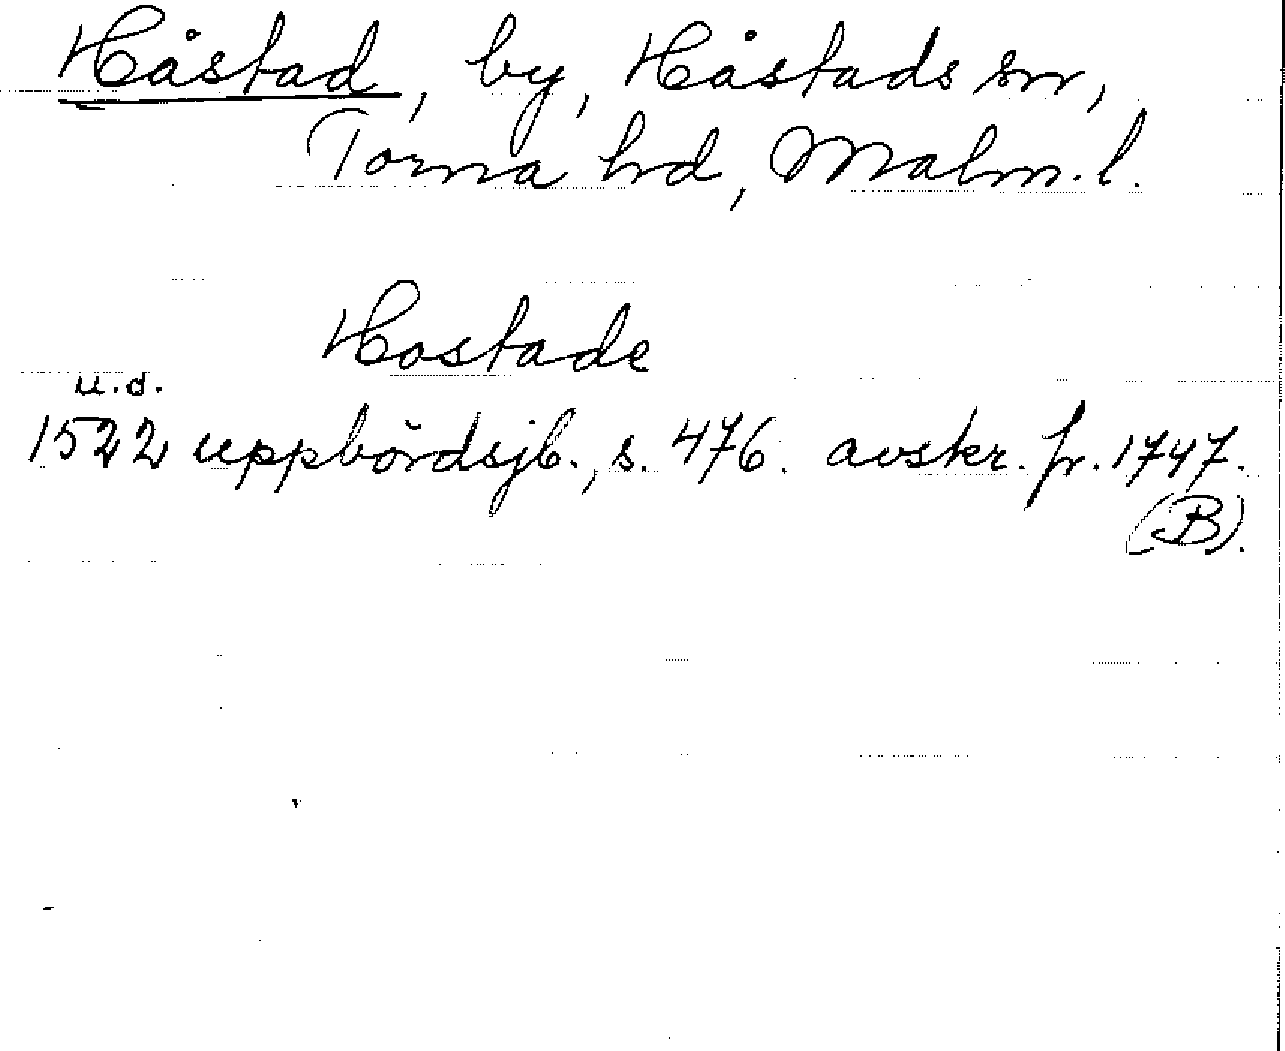 Håstad, by, Håstads sn,
Torna hd, Malm. l.
Hostade
u.d.
1522 uppbördsjb., s. 476. avskr. fr. 1747.
(B).